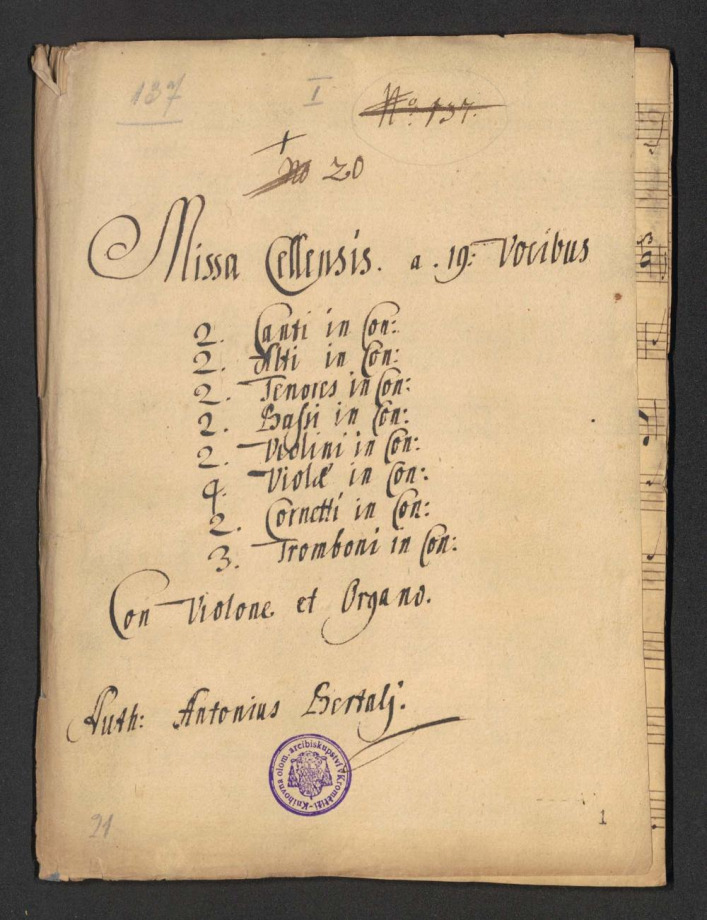 137
I
No. 137.
No 20
Missa Cellensis. a. 19: Vocibus
2. Canti in Con:
2. Alti in Con:
2. Tenores in Con:
2. Bassi in Con:
2. Violini in Con:
4. Violæ in Con:
2. Cornetti in Con:
3. Tromboni in Con:
Con Violone et Organo.
Auth: Antonius Bertalj.
Knihovna olom. arcibiskupství v Kroměříži
21
1